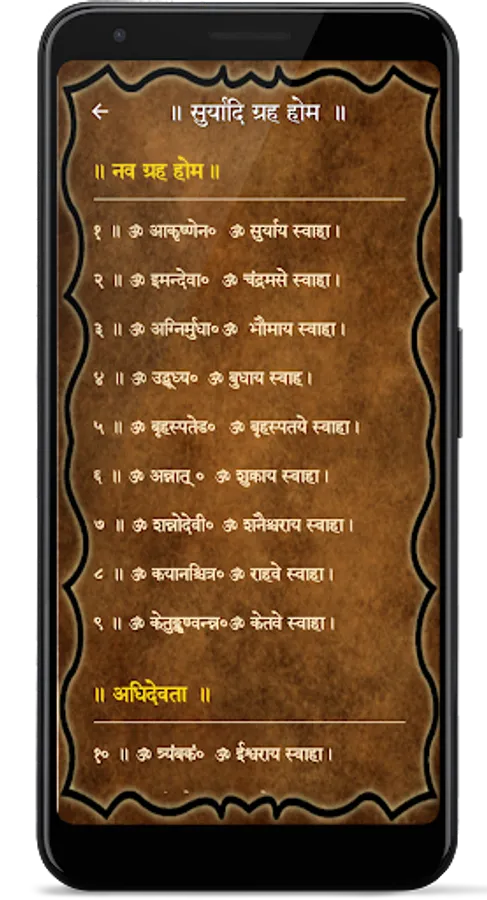 ॥ सुर्यादि ग्रह होम ॥
॥ नव ग्रह होम ॥
१ ॥ ॐ आकृष्णेन० ॐ सुर्याय स्वाहा ।
२ ॥ ॐ इमन्देवा० ॐ चंद्रमसे स्वाहा ।
३ ॥ ॐ अग्निर्मुधा० ॐ भौमाय स्वाहा ।
४ ॥ ॐ उद्बुध्य० ॐ बुधाय स्वाह ।
५ ॥ ॐ बृहस्पतेड० ॐ बृहस्पतये स्वाहा ।
६ ॥ ॐ अन्नात् ० ॐ शुक्राय स्वाहा ।
७ ॥ ॐ शन्नोदेवी० ॐ शनैश्चराय स्वाहा ।
८ ॥ ॐ कयानश्चित्र० ॐ राहवे स्वाहा ।
९ ॥ ॐ केतुङ्कृण्वन्न० ॐ केतवे स्वाहा ।
॥ अधिदेवता ॥
१० ॥ ॐ त्र्यंबकं० ॐ ईश्वराय स्वाहा ।